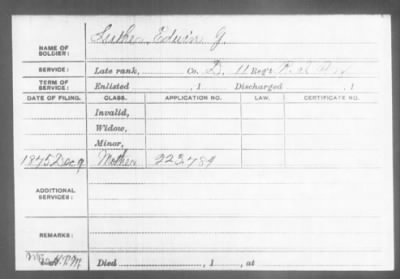 NAME OF SOLDIER: Luther, Edwin G.
SERVICE: Late rank, Co. D, 11 Reg't
TERM OF SERVICE: Enlisted , 1 Discharged , 1
DATE OF FILING. CLASS. APPLICATION NO. LAW. CERTIFICATE NO.
Invalid,
Widow,
Minor,
1875 Dec 9 Mother 223789
ADDITIONAL SERVICES:
REMARKS:
Died , 1 , at